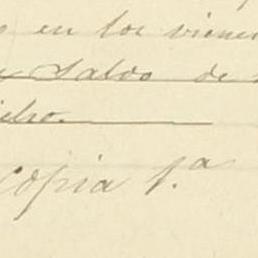 en los vienen
Saldo de
copia 1.ª